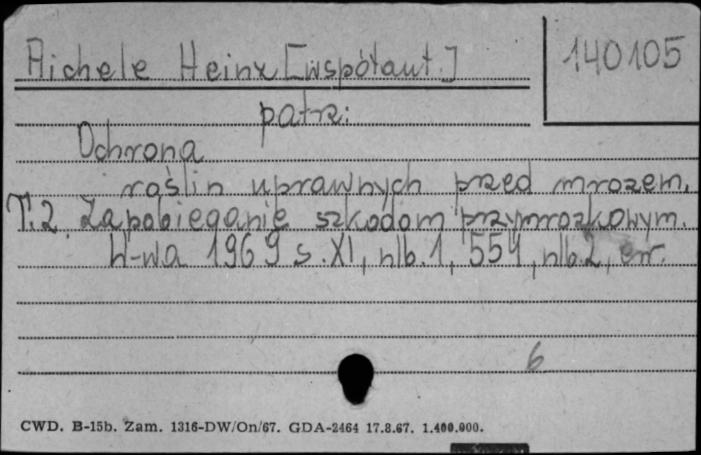 Aichele Heinz [współaut.]
140105
patrz:
Ochrona
roślin uprawnych przed mrozem.
T.2. Zapobieganie szkodom przymrozkowym.
W-wa 1969 s. XI, nlb. 1, 554, nlb. 2, err.
6
CWD. B-15b. Zam. 1316-DW/On/67. GDA-2464 17.8.67. 1.400.000.